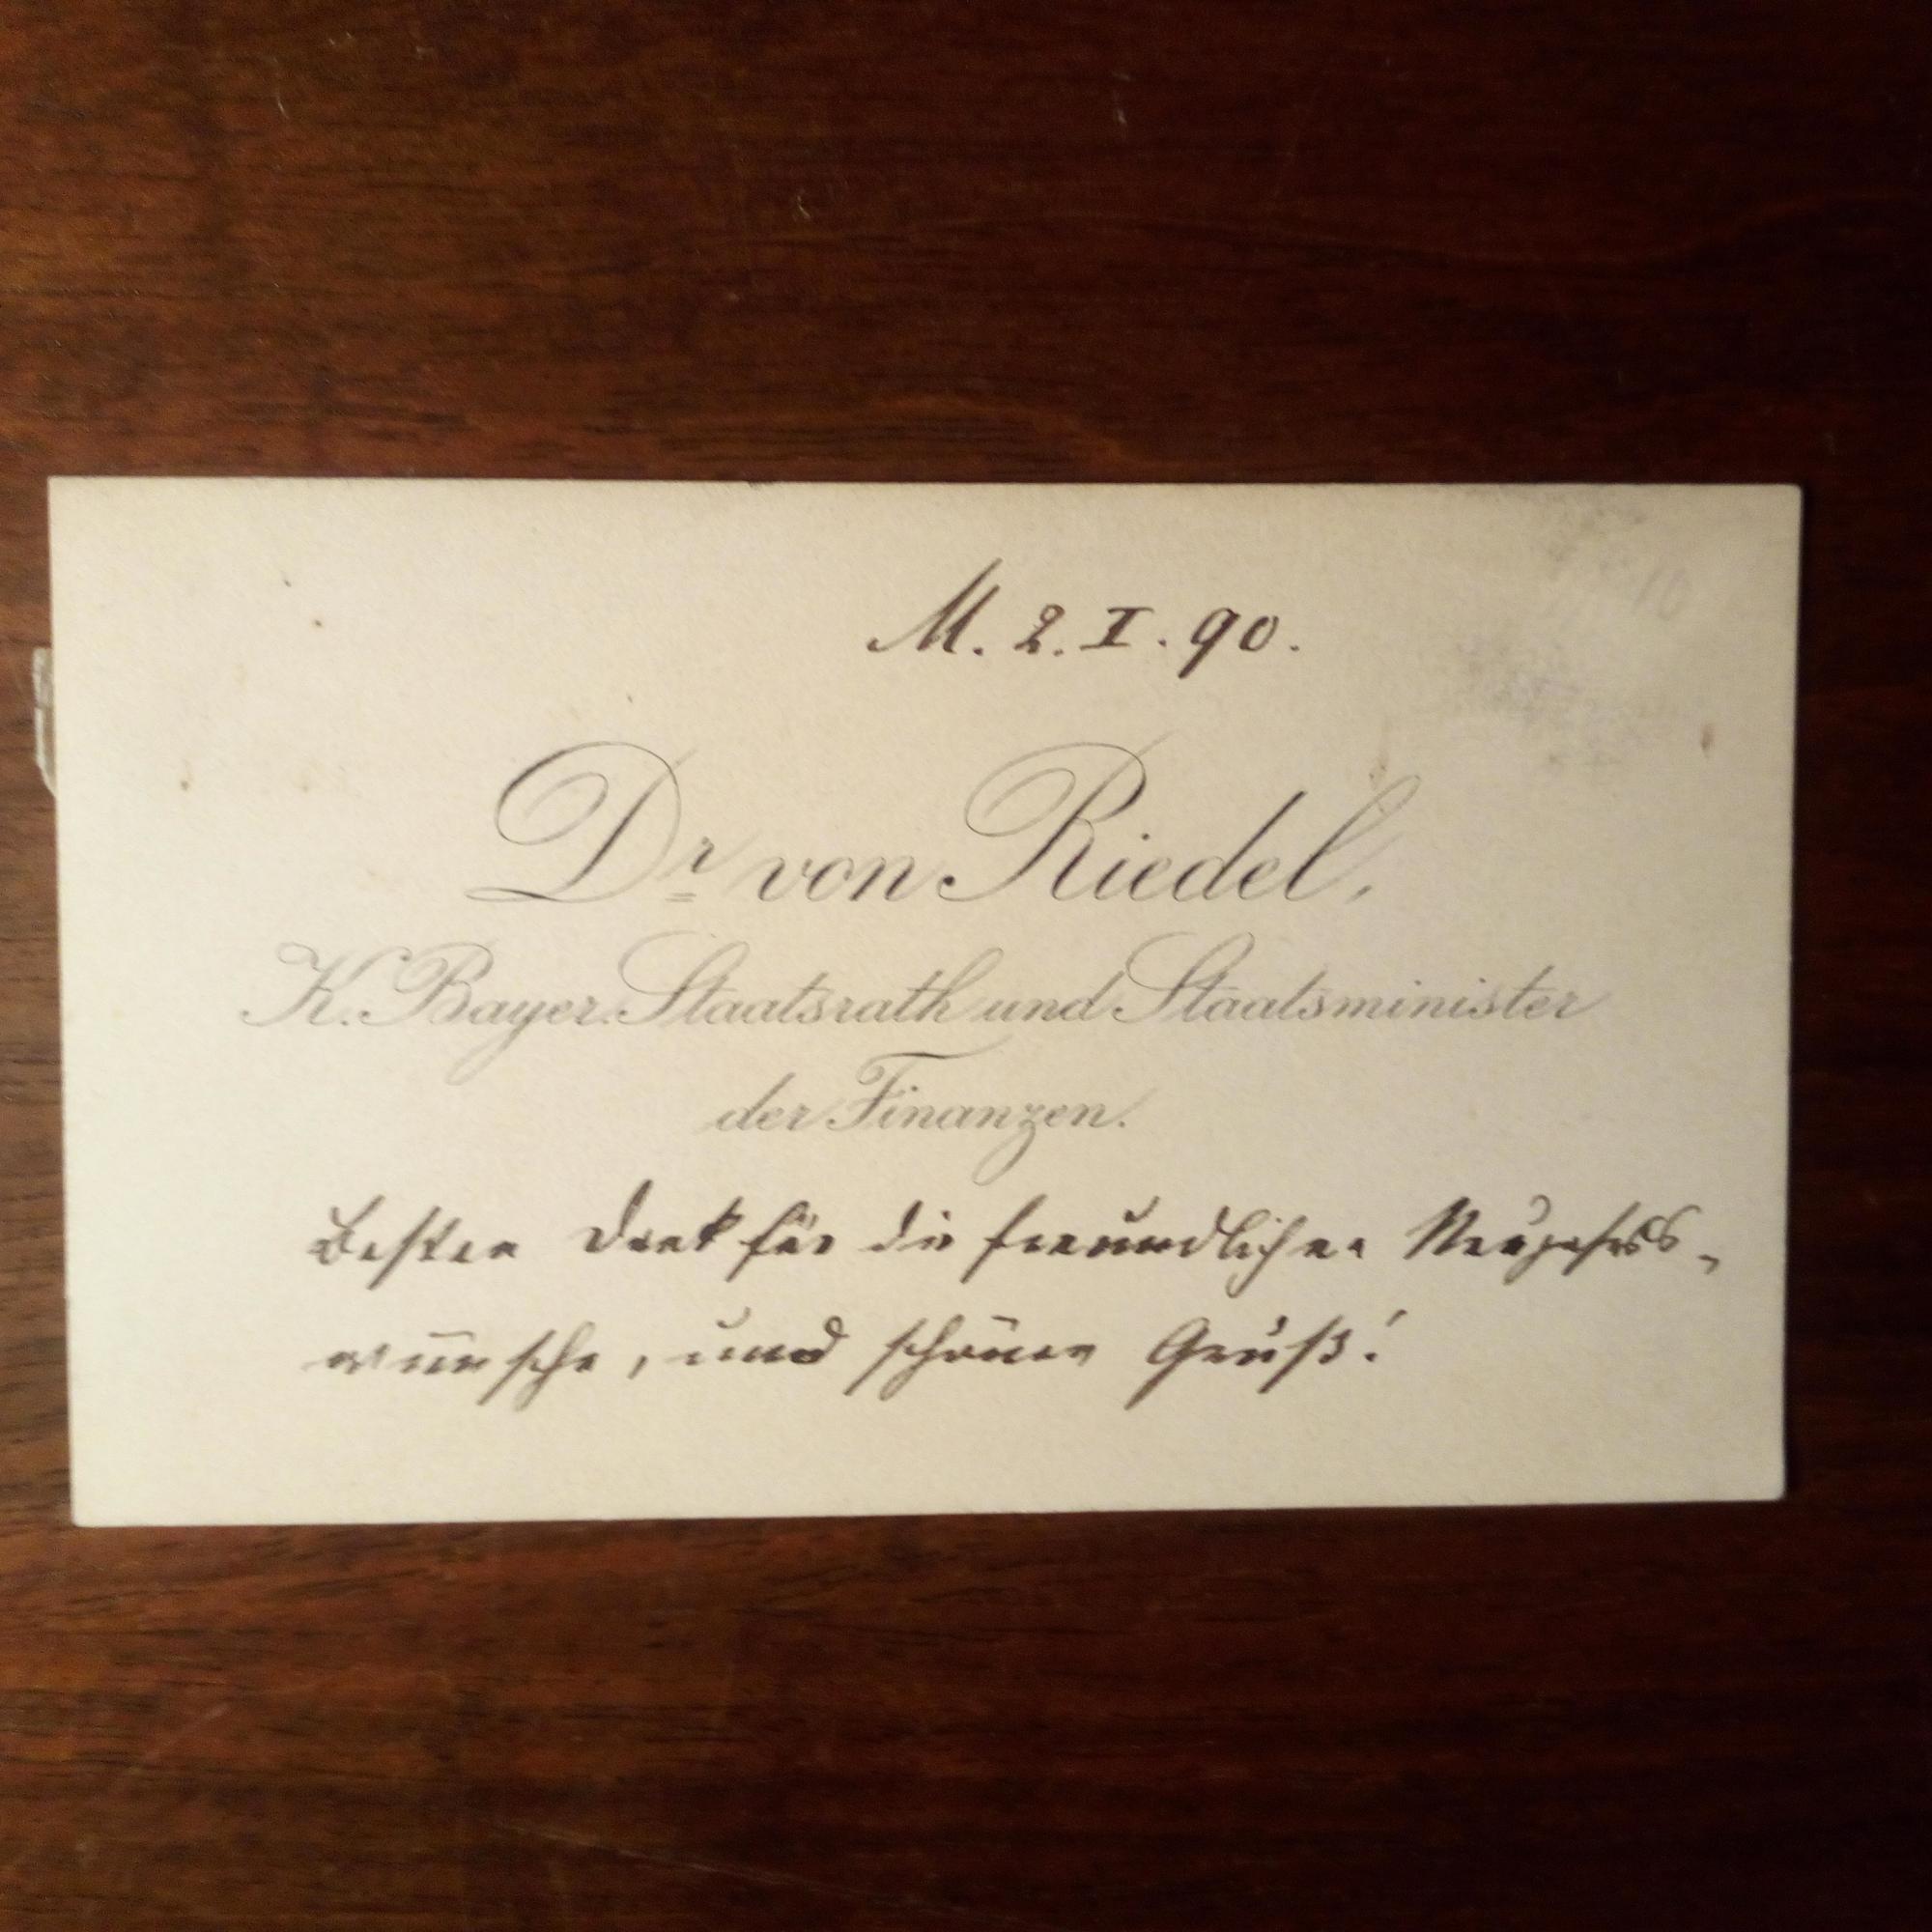 M. 2. I. 90.
Dr von Riedel,
K. Bayer. Staatsrath und Staatsminister
der Finanzen.
Besten Dank für die freundlichen Neujahrs-
wünsche, und schönen Gruß!